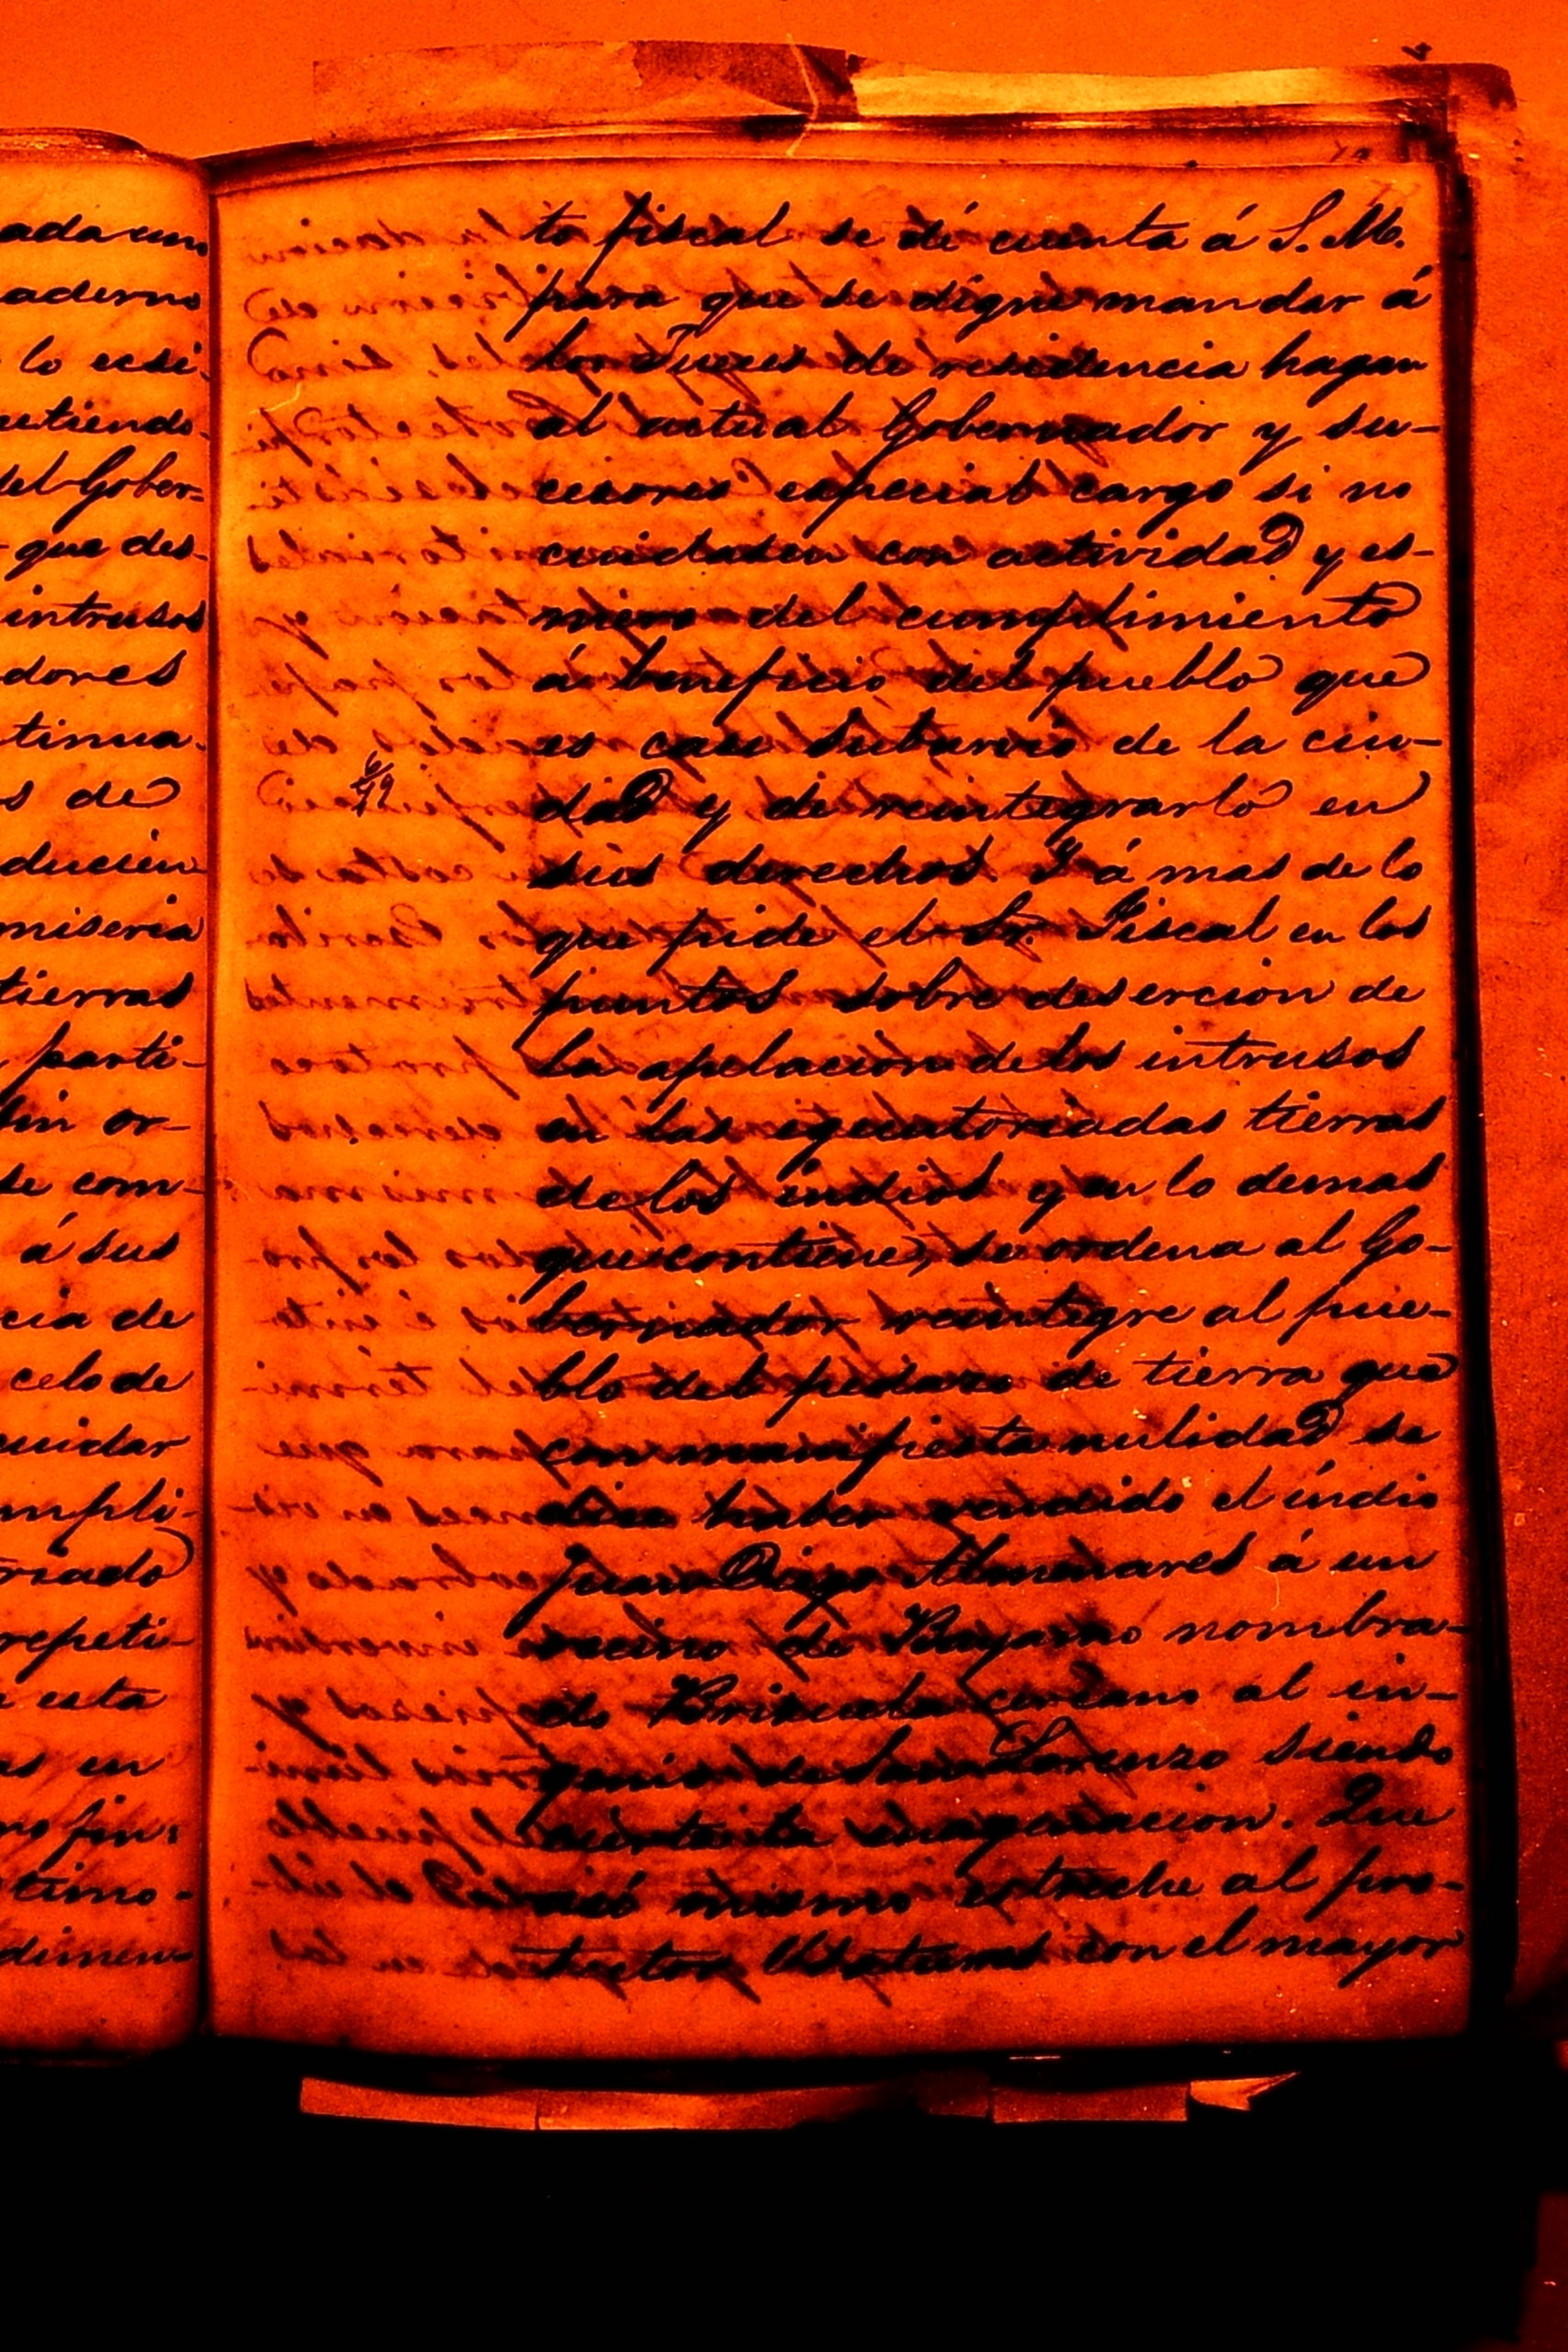 ada uno
aderno
lo ecsi-
etiendo
del Gober-
que des-
intrusos
dores
tinua-
s de
ducien
miseria
tierras
parti-
sin or-
se com-
á sus
cia de
celo de
cuidar
mpli-
riado
repeti-
esta
as en
timo-
dimen-
to fiscal se dé cuenta á S. M.
para que se digne mandar á
los Jueces de residencia hagan
al actual Gobernador y su-
cesores especial cargo si no
cuidasen con actividad y es-
mero del cumplimiento
á beneficio del pueblo que
es casi suburvio de la ciu-
dad y de reintegrarlo en
sus derechos. Y á mas de lo
que pide el Sr. Fiscal en los
puntos sobre desercion de
la apelacion de los intrusos
en las egecutoriadas tierras
de los indios y en lo demas
que contiene, se ordena al Go-
bernador reintegre al pue-
blo del pedazo de tierra que
con manifiesta nulidad se
dice haber vendido el índio
Juan Diego Almenares á un
vecino de Bayamo nombra-
do Brizuela cercano al in-
genio de San Lorenzo siendo
cierta la enagenacion. Que
asi mismo estreche al pro-
tector Ustatures con el mayor